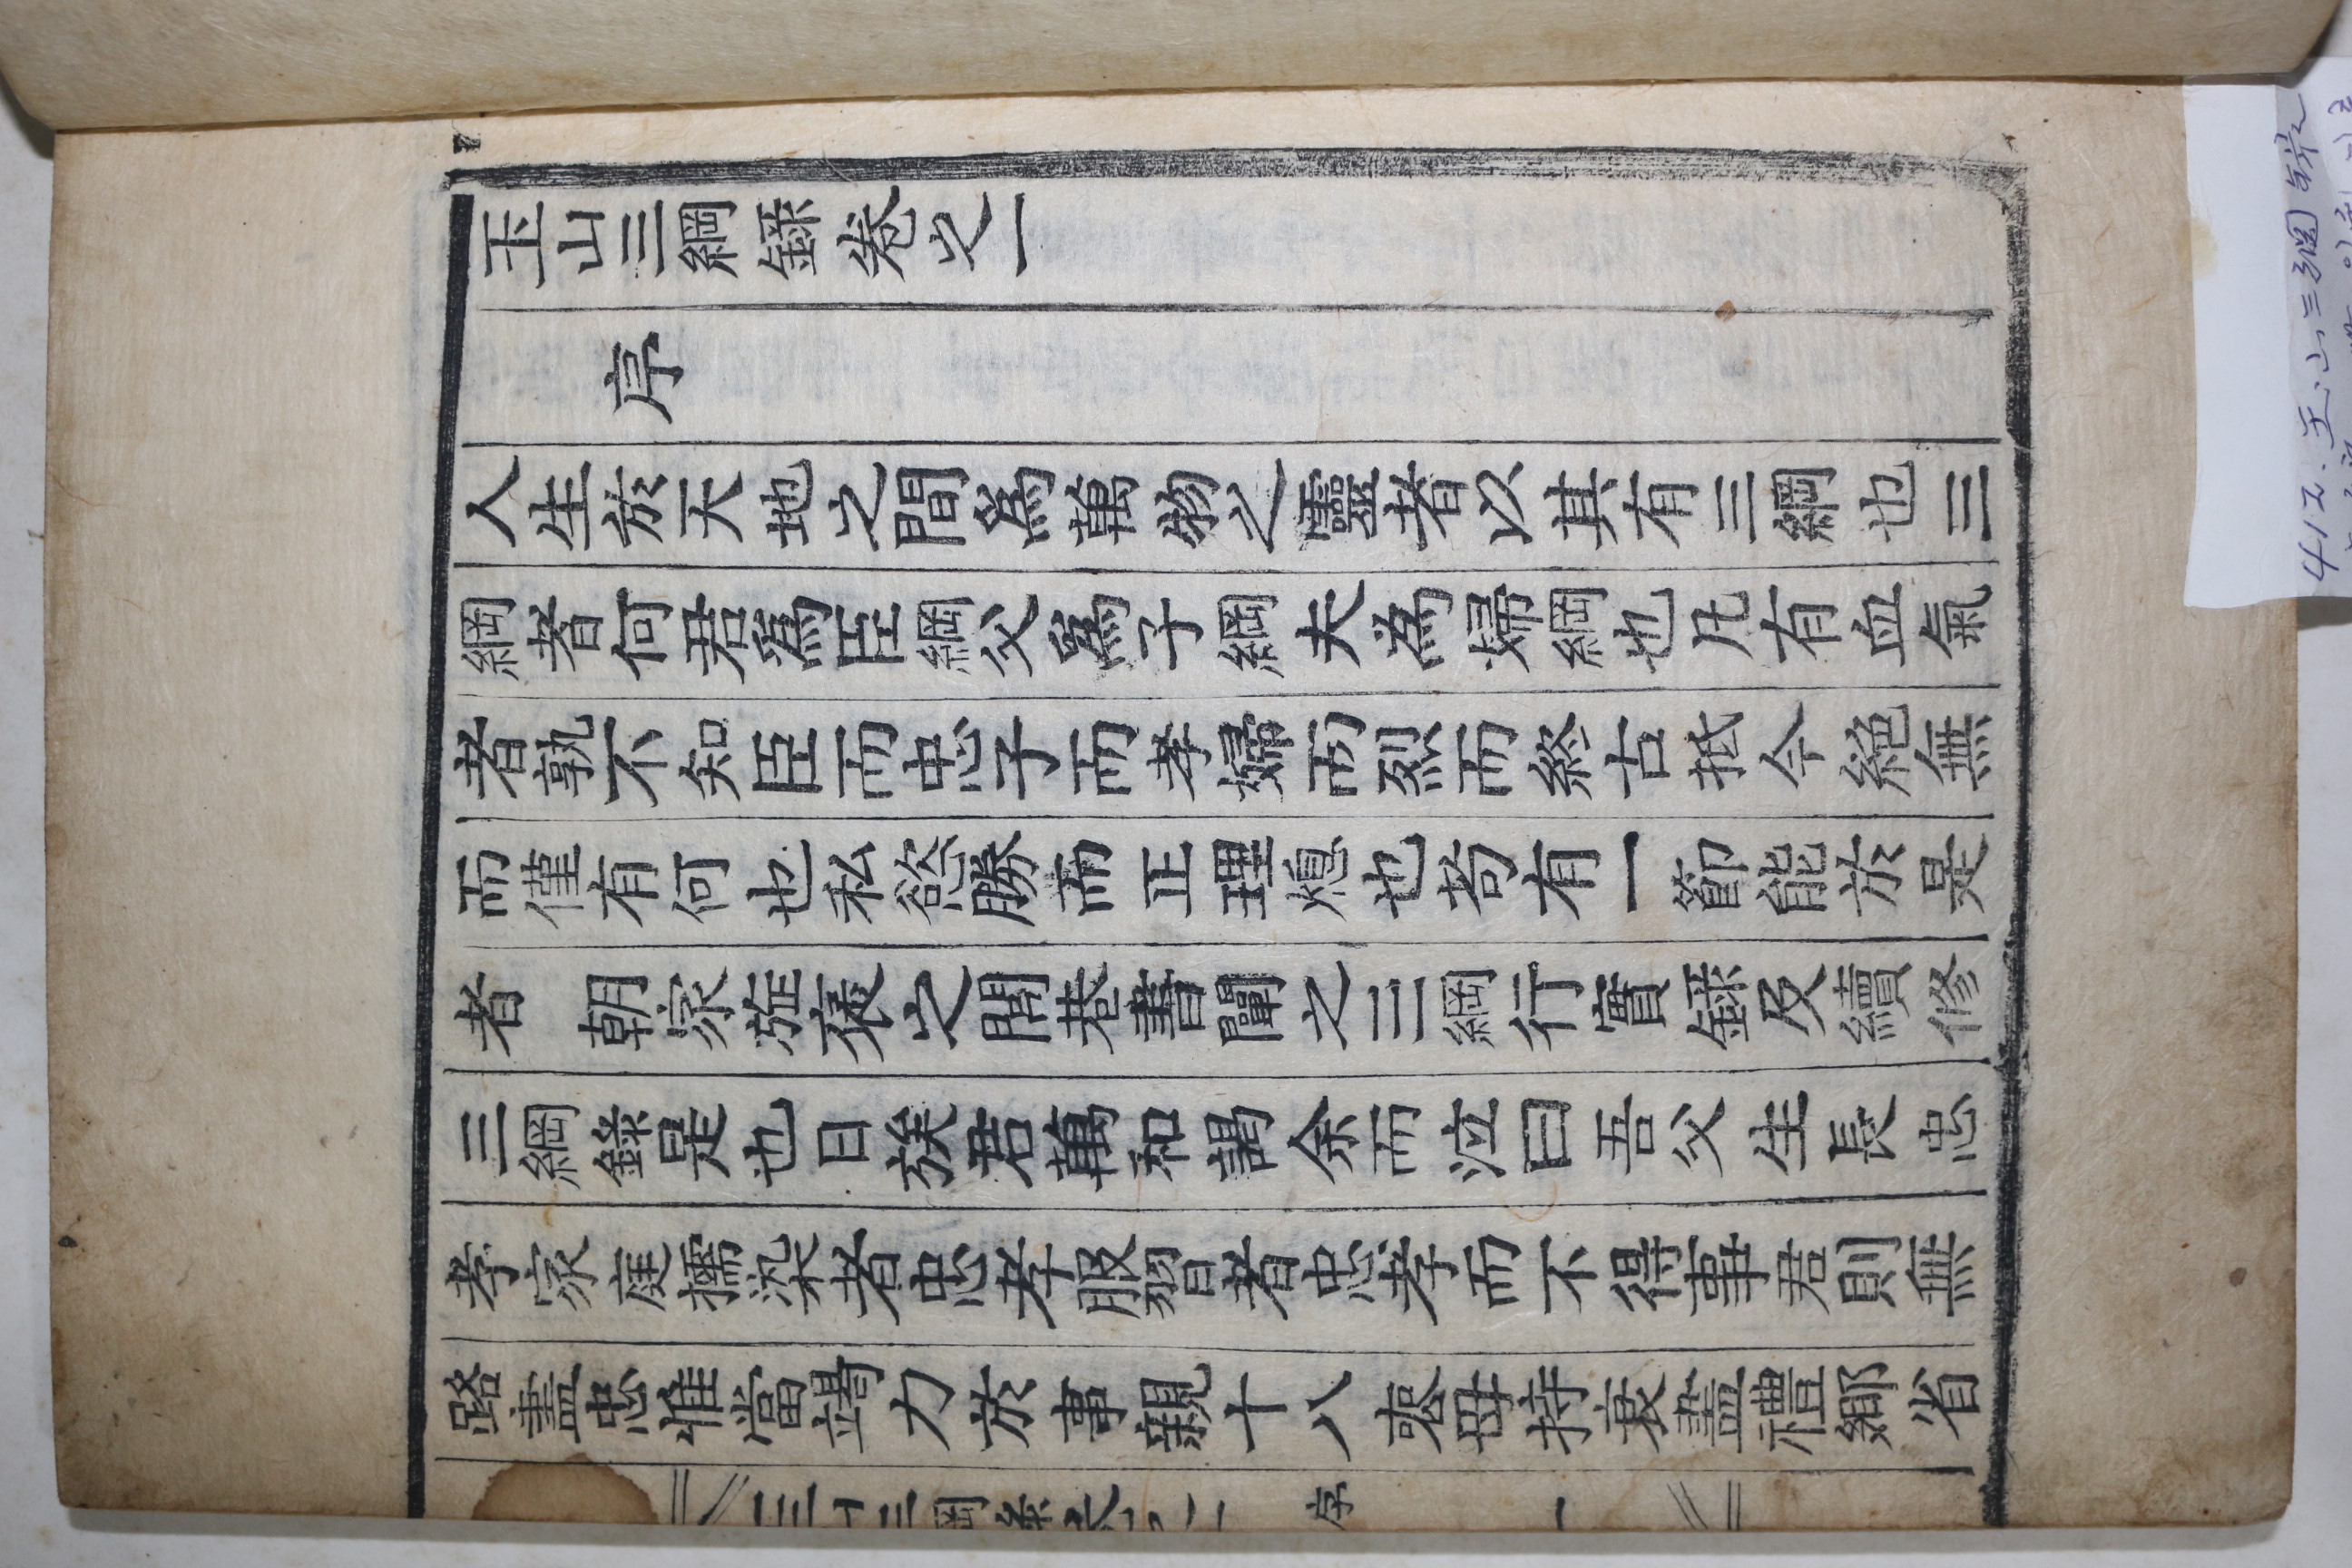 玉山三綱錄卷之一
序
人生於天地之間爲萬物之靈者以其有三綱也三
綱者何君爲臣綱父爲子綱夫為婦綱也凡有血氣
者孰不知臣而忠子而孝婦而烈而終古抵今絶無
而僅有何也私慾勝而正理熄也苟有一節能於是
者 朝家旌褒之閭巷書闡之三綱行實錄及續修
三綱錄是也日族君萬和謁余而泣曰吾父生長忠
孝家庭擩染者忠孝服習者忠孝而不得事君則無
路盡忠惟當竭力於事親十八喪母持衰盡禮鄉省
序 一
412. 玉山三綱錄